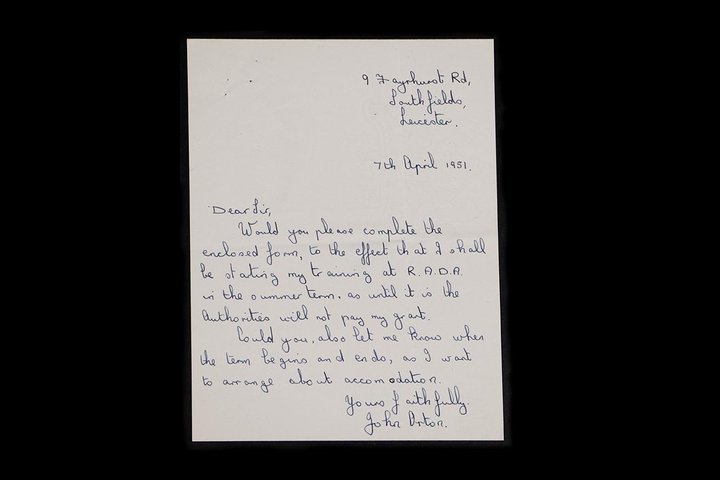 9 Fayrhurst Rd,
Southfields,
Leicester.
7th April 1951.
Dear Sir,
Would you please complete the
enclosed form, to the effect that I shall
be stating my training at R.A.D.A.
in the summer term. as until it is the
Authorities will not pay my grant.
Could you, also let me know when
the term begins and ends, as I want
to arrange about accomodation.
Yours faithfully.
John Orton.